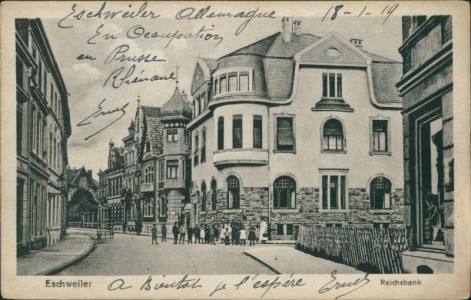 Eschweiler Allemagne 18-1-19
En Ocupation
en Prusse
Rhénane.
Ernest
Eschweiler
Reichsbank
A Bientôt je l'espére Ernest